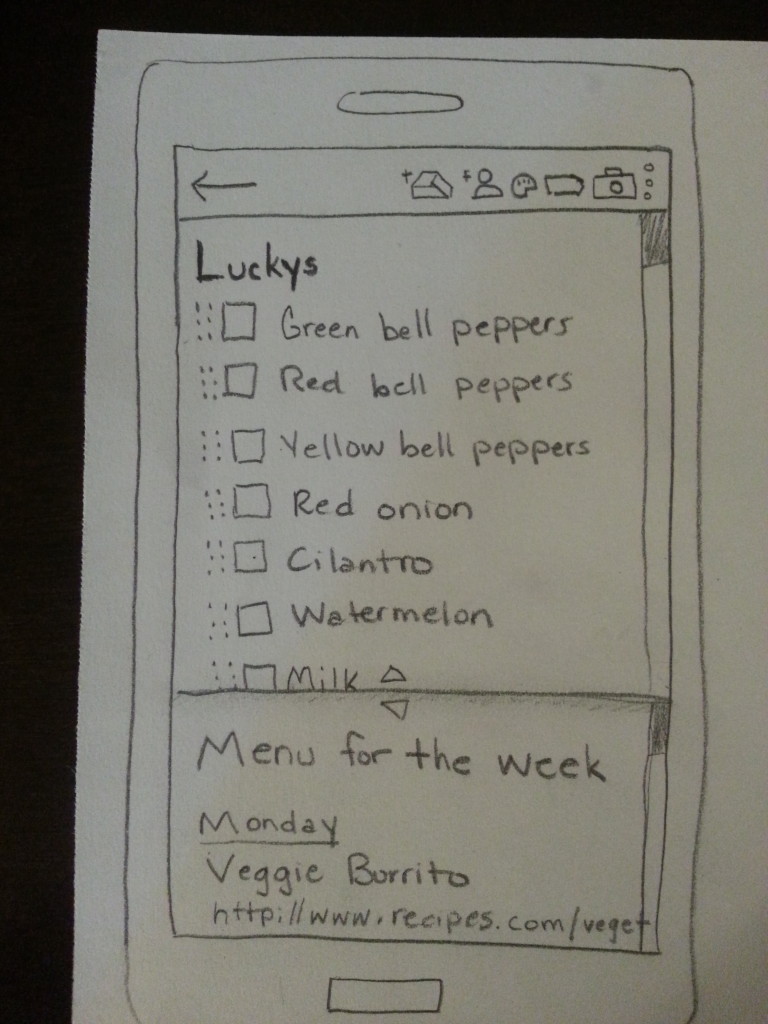 Luckys
Green bell peppers
Red bell peppers
Yellow bell peppers
Red onion
Cilantro
Watermelon
Milk
Menu for the week
Monday
Veggie Burrito
http://www.recipes.com/veget